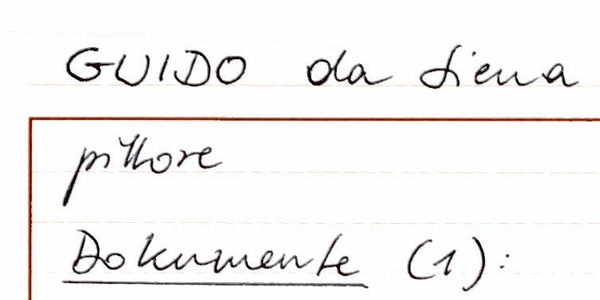 GUIDO da Siena
pittore
Dokumente (1):